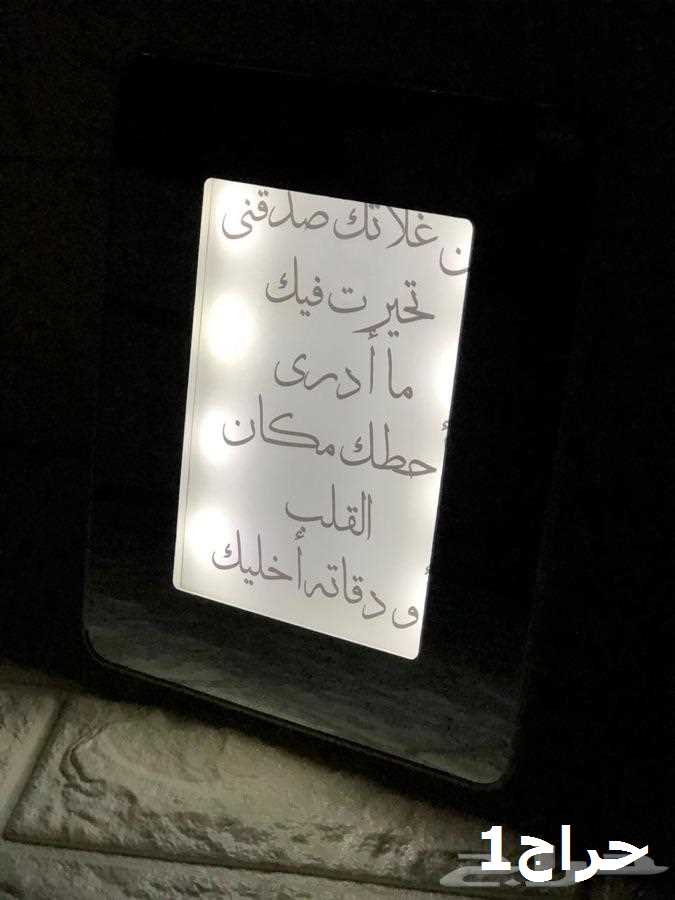 ن غلاتك صدقني
تحيرت فيك
ما أدرى
أحطك مكان
القلب
أو دقاته أخليك
حراج1
حراج